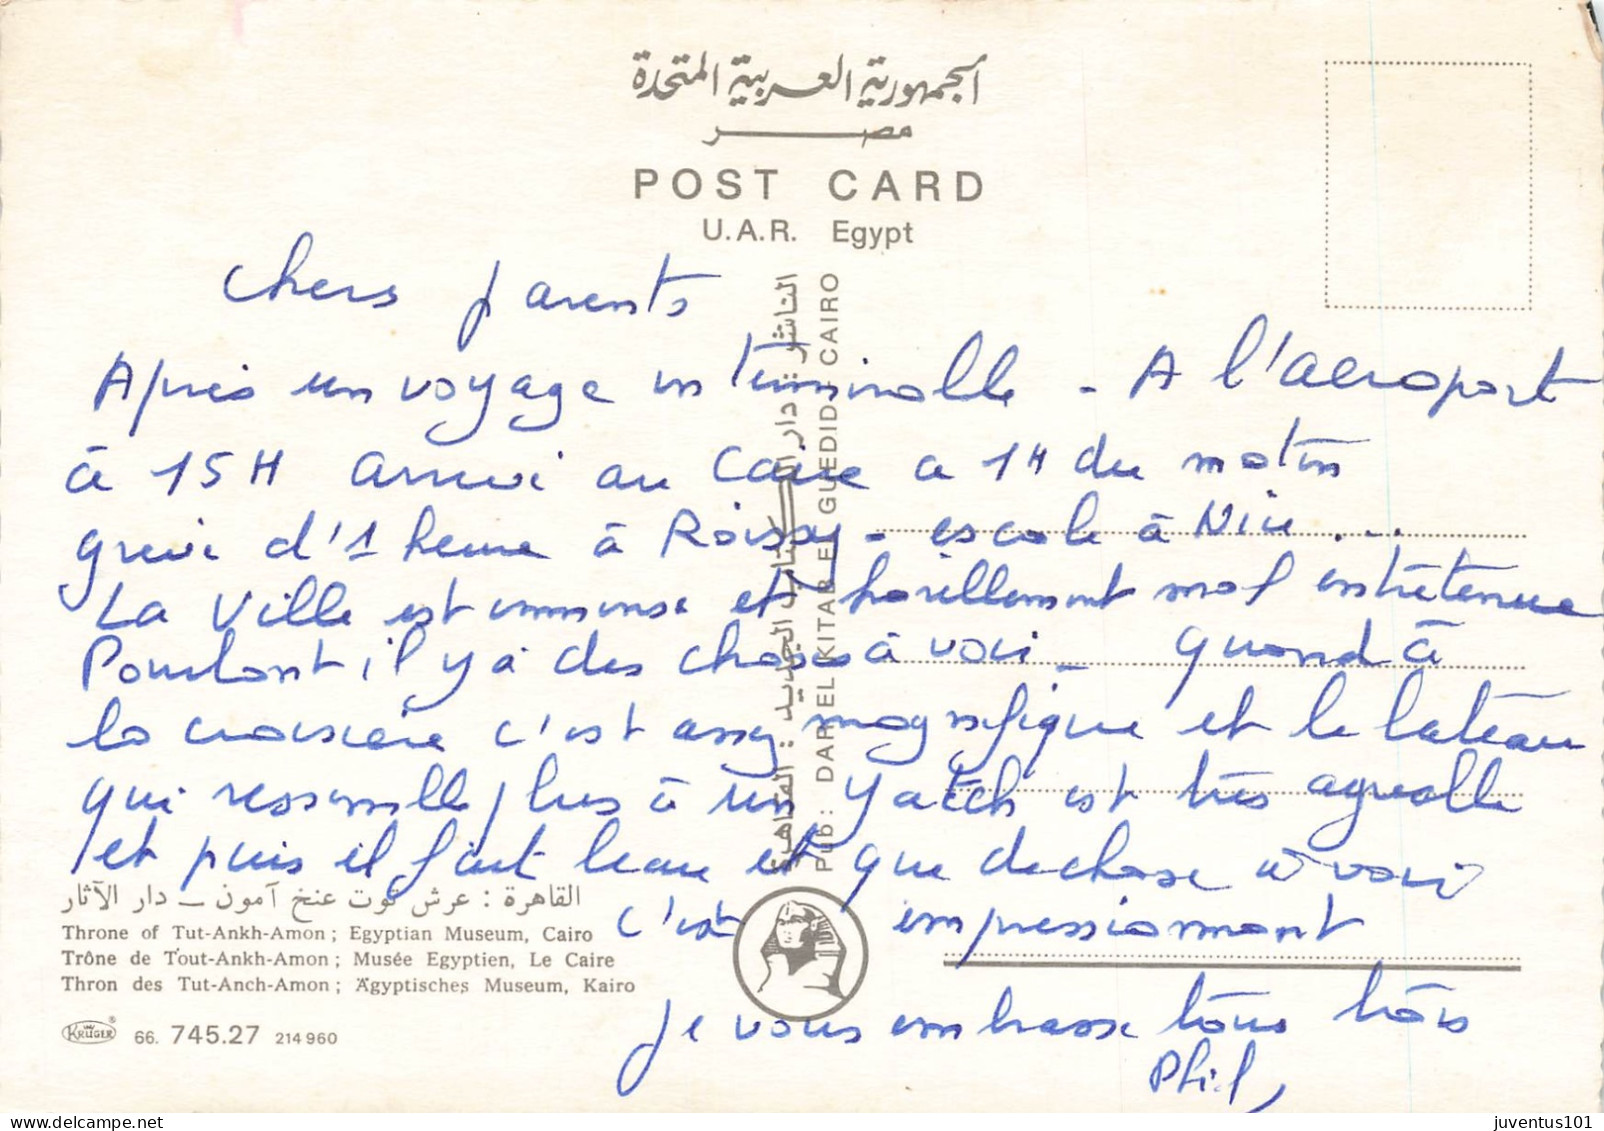 الجمهورية العربية المتحدة
مصر
POST CARD
U.A.R. Egypt
Chers parents
Après un voyage interminable - A l'aéroport
à 15H arrivé au Caire a 1H du matin
grève d'1 heure à Roissy - escale à Nice ...
La Ville est immense et horriblement mal entretenue
Pourtant il y a des choses à voir - Quand à
la croisière c'est assez magnifique et le bateau
qui ressemble plus à un Yatch est très agréable
et puis il fait beau et que de chose à voir
c'est impressionnant
Je vous embrasse tous trois
Phil
الناشر : دار الكتاب الجديد : القاهرة
Pub: DAR EL KITAB EL GUEDID - CAIRO
القاهرة : عرش توت عنخ آمون — دار الآثار
Throne of Tut-Ankh-Amon; Egyptian Museum, Cairo
Trône de Tout-Ankh-Amon; Musée Egyptien, Le Caire
Thron des Tut-Anch-Amon; Ägyptisches Museum, Kairo
KRÜGER® 66. 745.27 214 960
juventus101